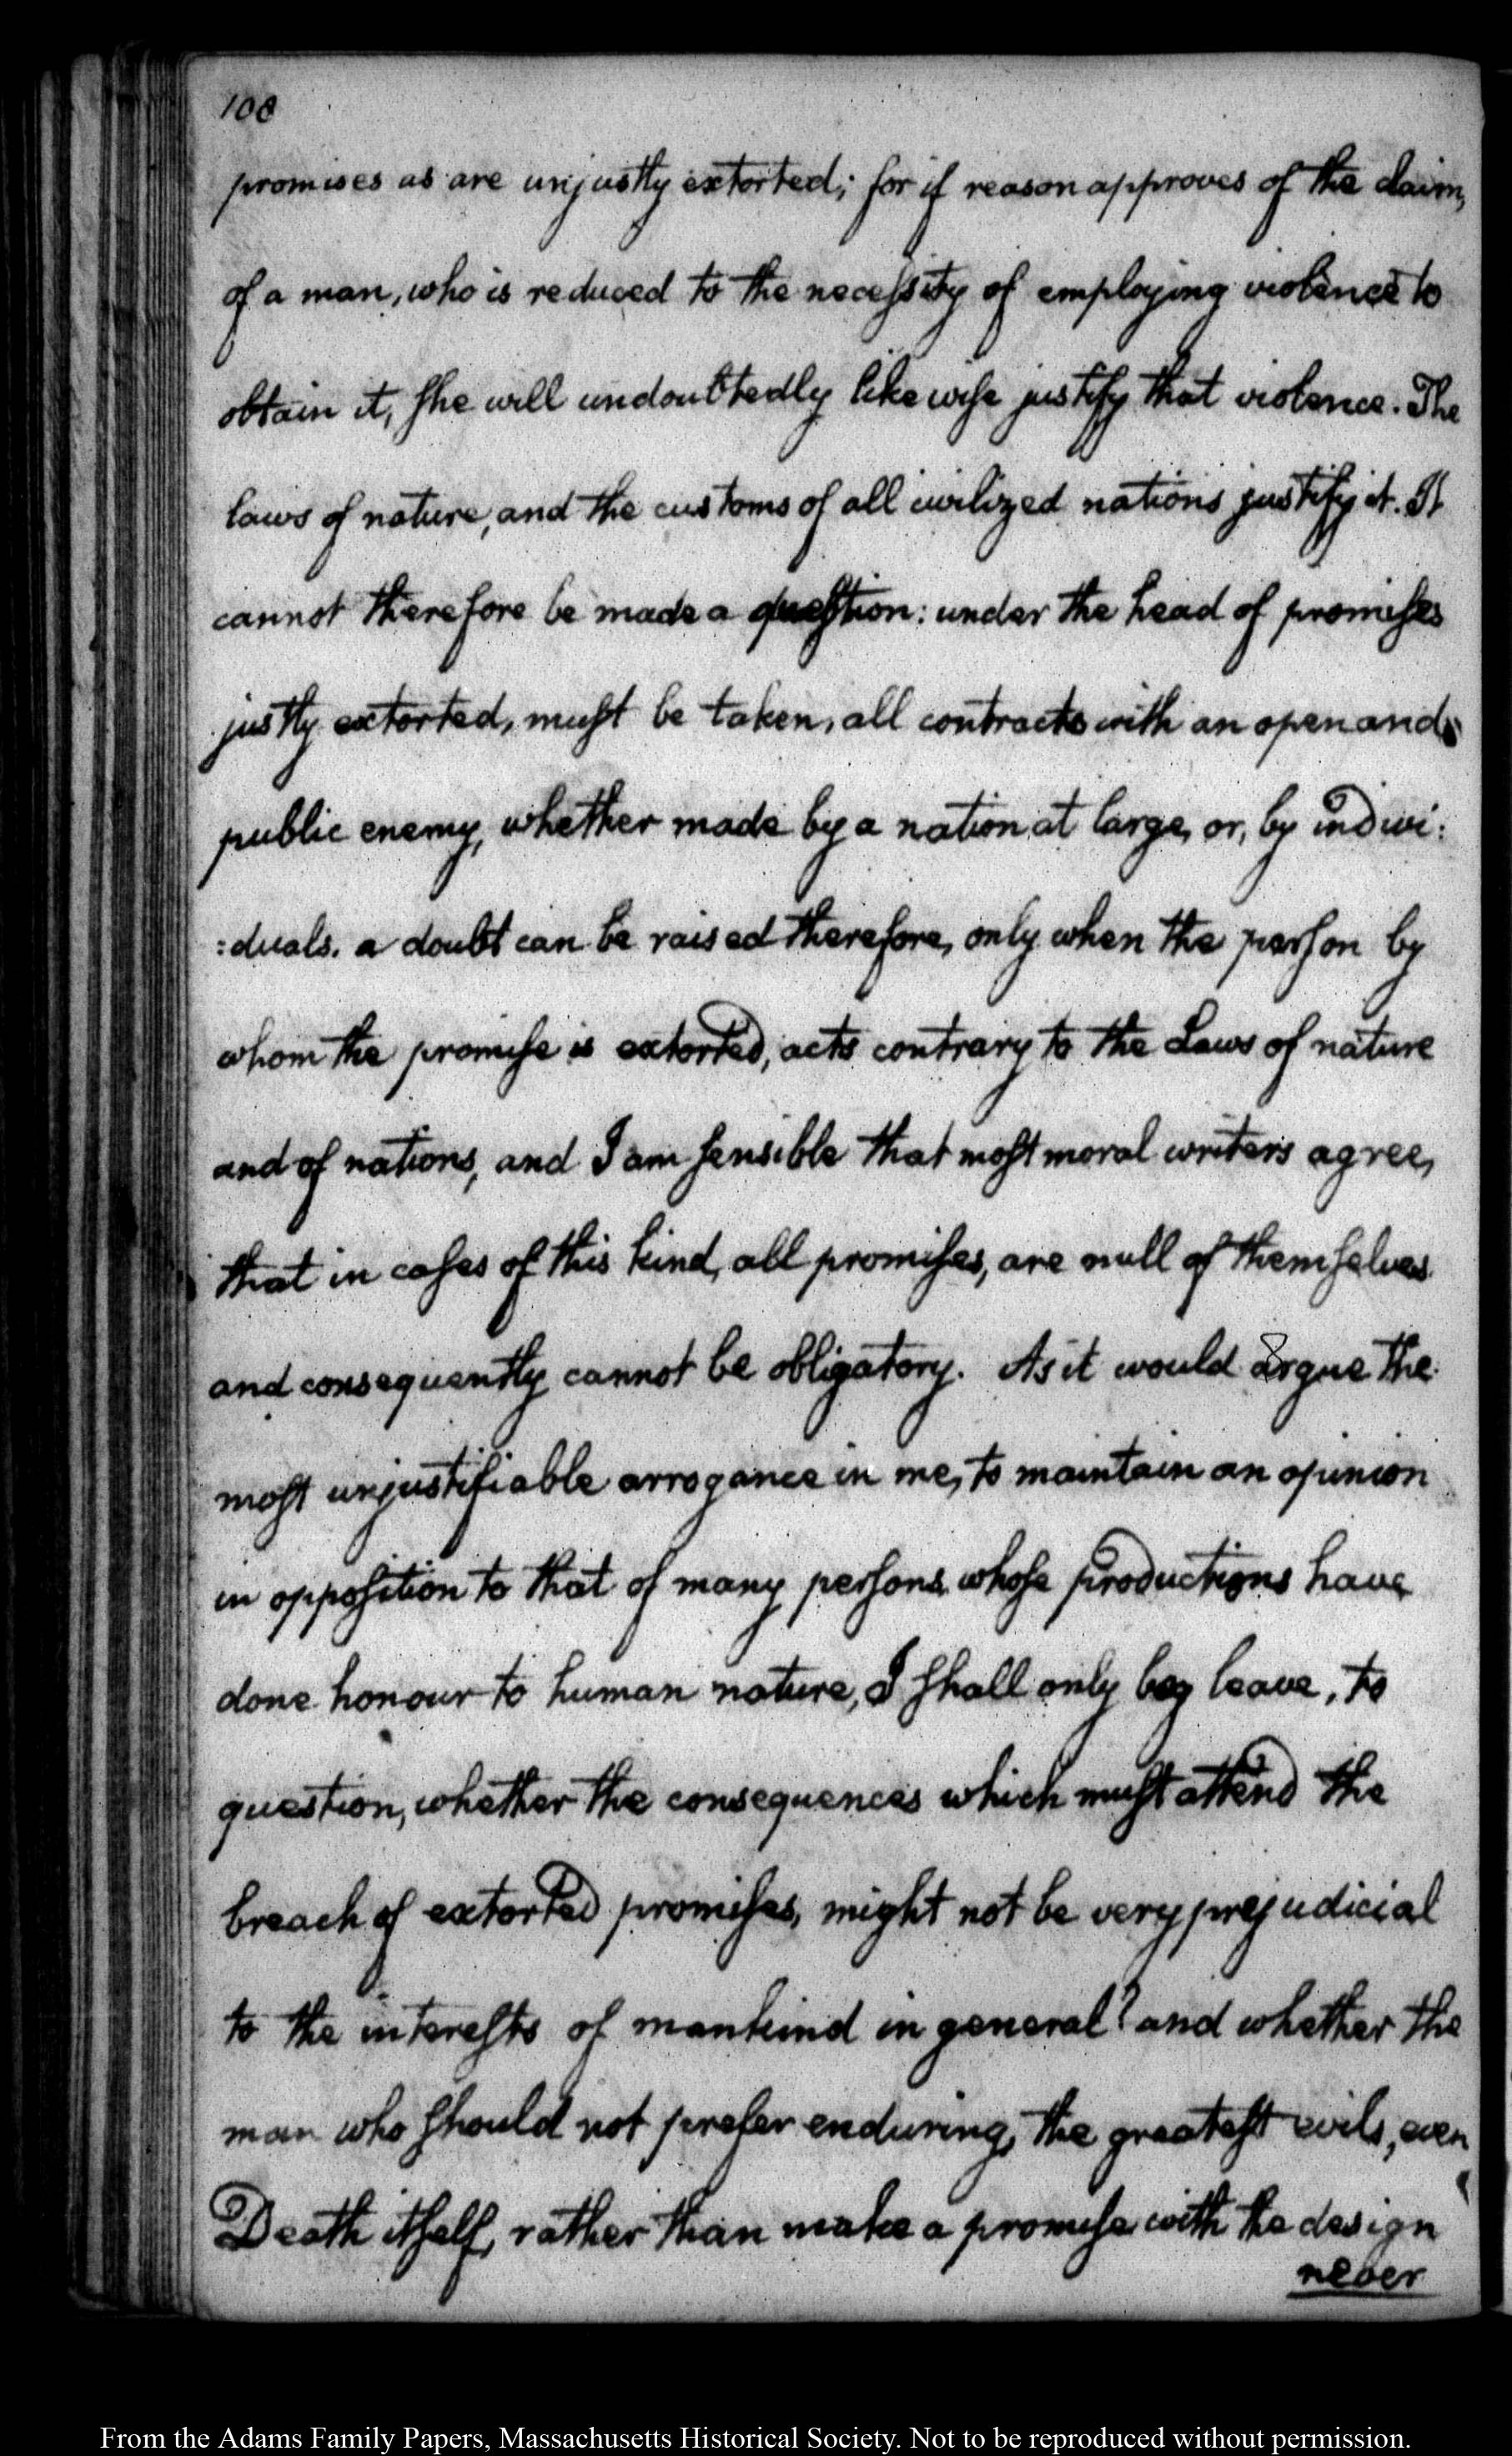 108
promises as are unjustly extorted; for if reason approves of the claim,
of a man, who is reduced to the necessity of employing violence to
obtain it, she will undoubtedly likewise justify that violence. The
laws of nature, and the customs of all civilized nations justify it. It
cannot therefore be made a question: under the head of promises
justly extorted, must be taken, all contracts with an open and
public enemy, whether made by a nation at large, or, by indivi:
:duals. a doubt can be raised therefore, only when the person by
whom the promise is extorted, acts contrary to the Laws of nature
and of nations, and I am sensible that most moral writers agree,
that in cases of this kind, all promises, are null of themselves
and consequently cannot be obligatory. As it would argue the
most unjustifiable arrogance in me, to maintain an opinion
in opposition to that of many persons whose productions have
done honour to human nature, I shall only beg leave, to
question, whether the consequences which must attend the
breach of extorted promises, might not be very prejudicial
to the interests of mankind in general? and whether the
man who should not prefer enduring, the greatest evils, even
Death itself, rather than make a promise with the design
never
From the Adams Family Papers, Massachusetts Historical Society. Not to be reproduced without permission.